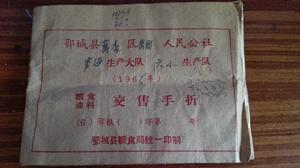 鄂城县 区 人民公社
生产大队 六小 生产队
(196 年)
粮食
油料
交售手折
(6) 寿粮( )字第 号
鄂城县粮食局统一印制